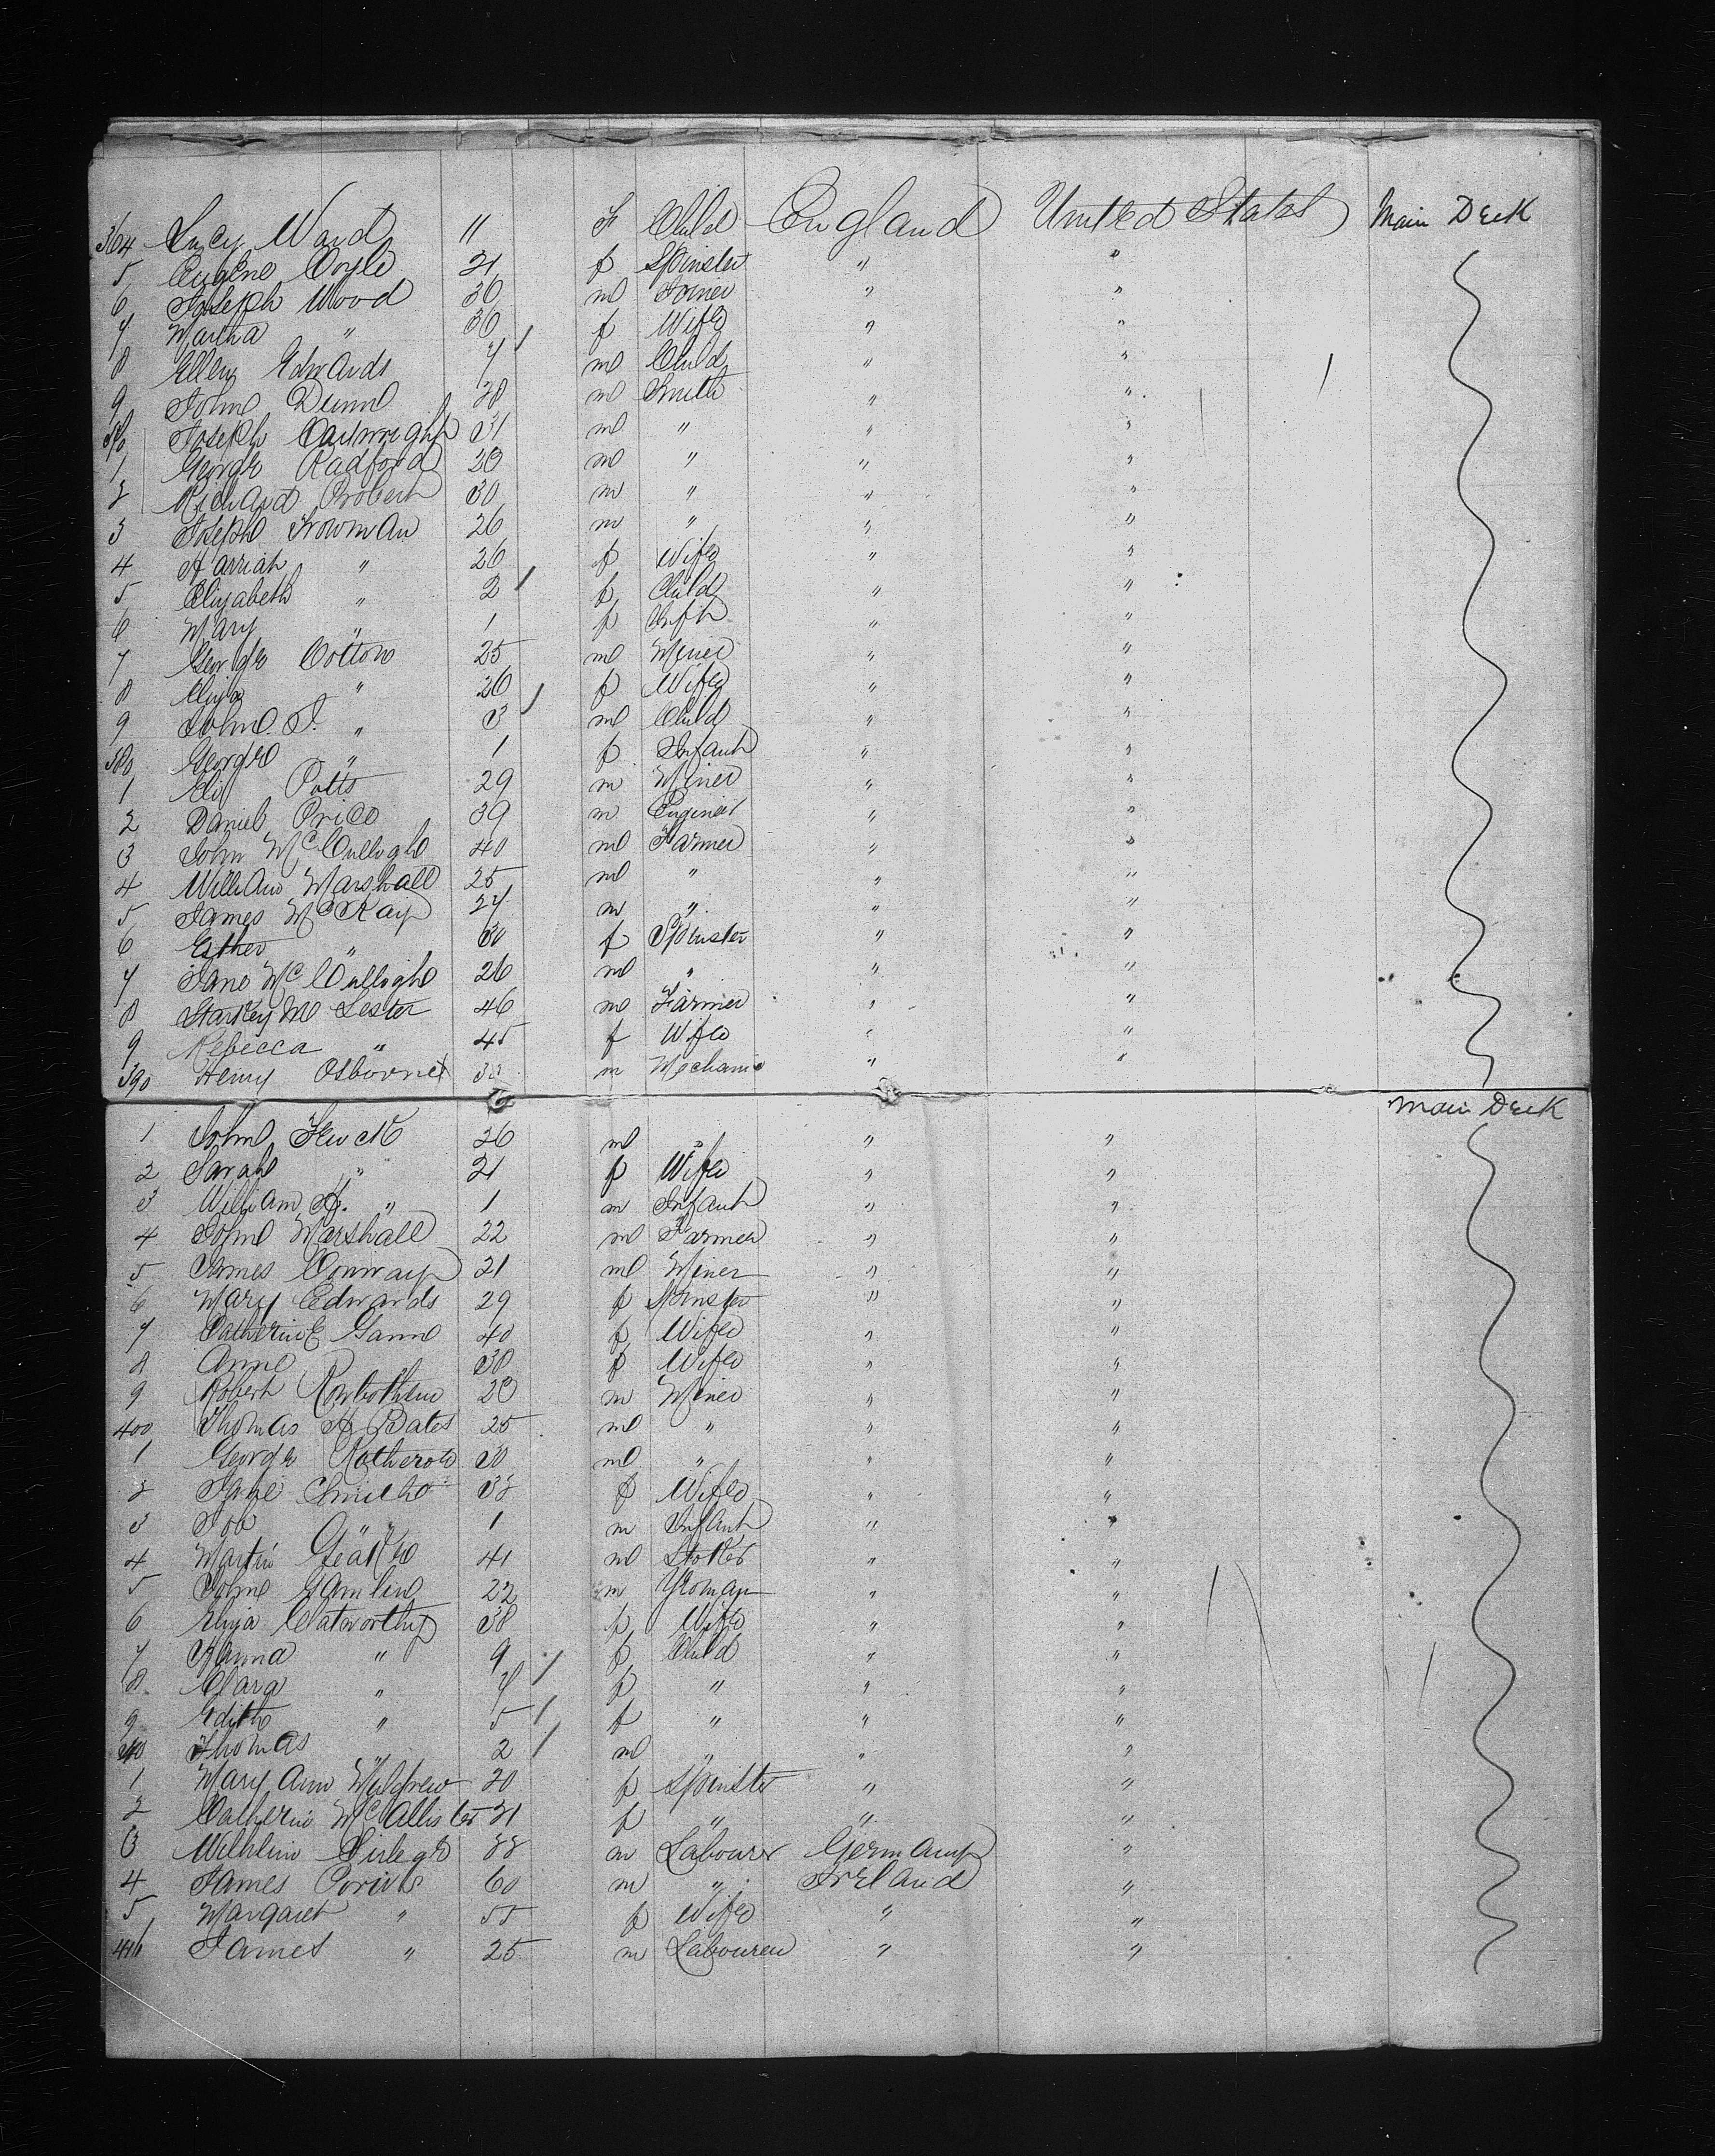 364 Lucy Ward 11 F Child England United States Main Deck
5 Eugene Coyle 21 f Spinster " "
6 Joseph Wood 30 m Joiner " "
7 Martha " 30 f Wife " "
8 Ellen Edwards 7 m Child " "
9 John Dunn 28 m Smith " "
370 Joseph Cartwright 31 m " " "
1 George Radford 28 m " " "
2 Richard Probert 30 m " " "
3 Joseph Trowman 26 m " " "
4 Harriah " 26 f Wife " "
5 Elizabeth " 2 f Child " "
6 Mary " 1 f Infn " "
7 George Cotton 25 m Miner " "
8 Eliza " 26 f Wife " "
9 John J. " 3 m Child " "
380 George " 1 f Infant " "
1 Eli Potts 29 m Miner " "
2 Daniel Price 39 m Engineer " "
3 John McCullogh 40 m Farmer " "
4 William Marshall 25 m " " "
5 James McKay 27 m " " "
6 Esther " 30 f Spinster " "
7 Jane McCullogh 26 m " " "
8 Starkey M Lester 46 m Farmer " "
9 Rebecca " 45 f Wife " "
390 Henry Osborne 38 m Mechanic " "
Main Deck
1 John 26 m " " "
2 Sarah " 21 f Wife " "
3 William H. " 1 m Infant " "
4 John Marshall 22 m Farmer " "
5 James Conway 21 m Miner " "
6 Mary Edwards 29 f Spinster " "
7 Catherine Gann 40 f Wife " "
8 Anne 38 f Wife " "
9 Robert Rowbotham 28 m Miner " "
400 Thomas H Bates 25 m " " "
1 George 30 m " " "
2 Jane Smith 38 f Wife " "
3 Job " 1 m Infant " "
4 Martin 41 m Stoker " "
5 John Hamlin 22 m Yeoman " "
6 Eliza Clatworthy 38 f Wife " "
7 Hanna " 9 f Child " "
8 Clara " 7 f " " "
9 Edith " 5 f " " "
410 Thomas " 2 m " " "
1 Mary Ann Muldrew 20 f Spinster " "
2 Catherine McAllister 21 f " " "
3 Wilhelm 38 m Labourer Germany "
4 James 60 m " Ireland "
5 Margaret " 55 f Wife " "
416 James " 25 m Labourer " "